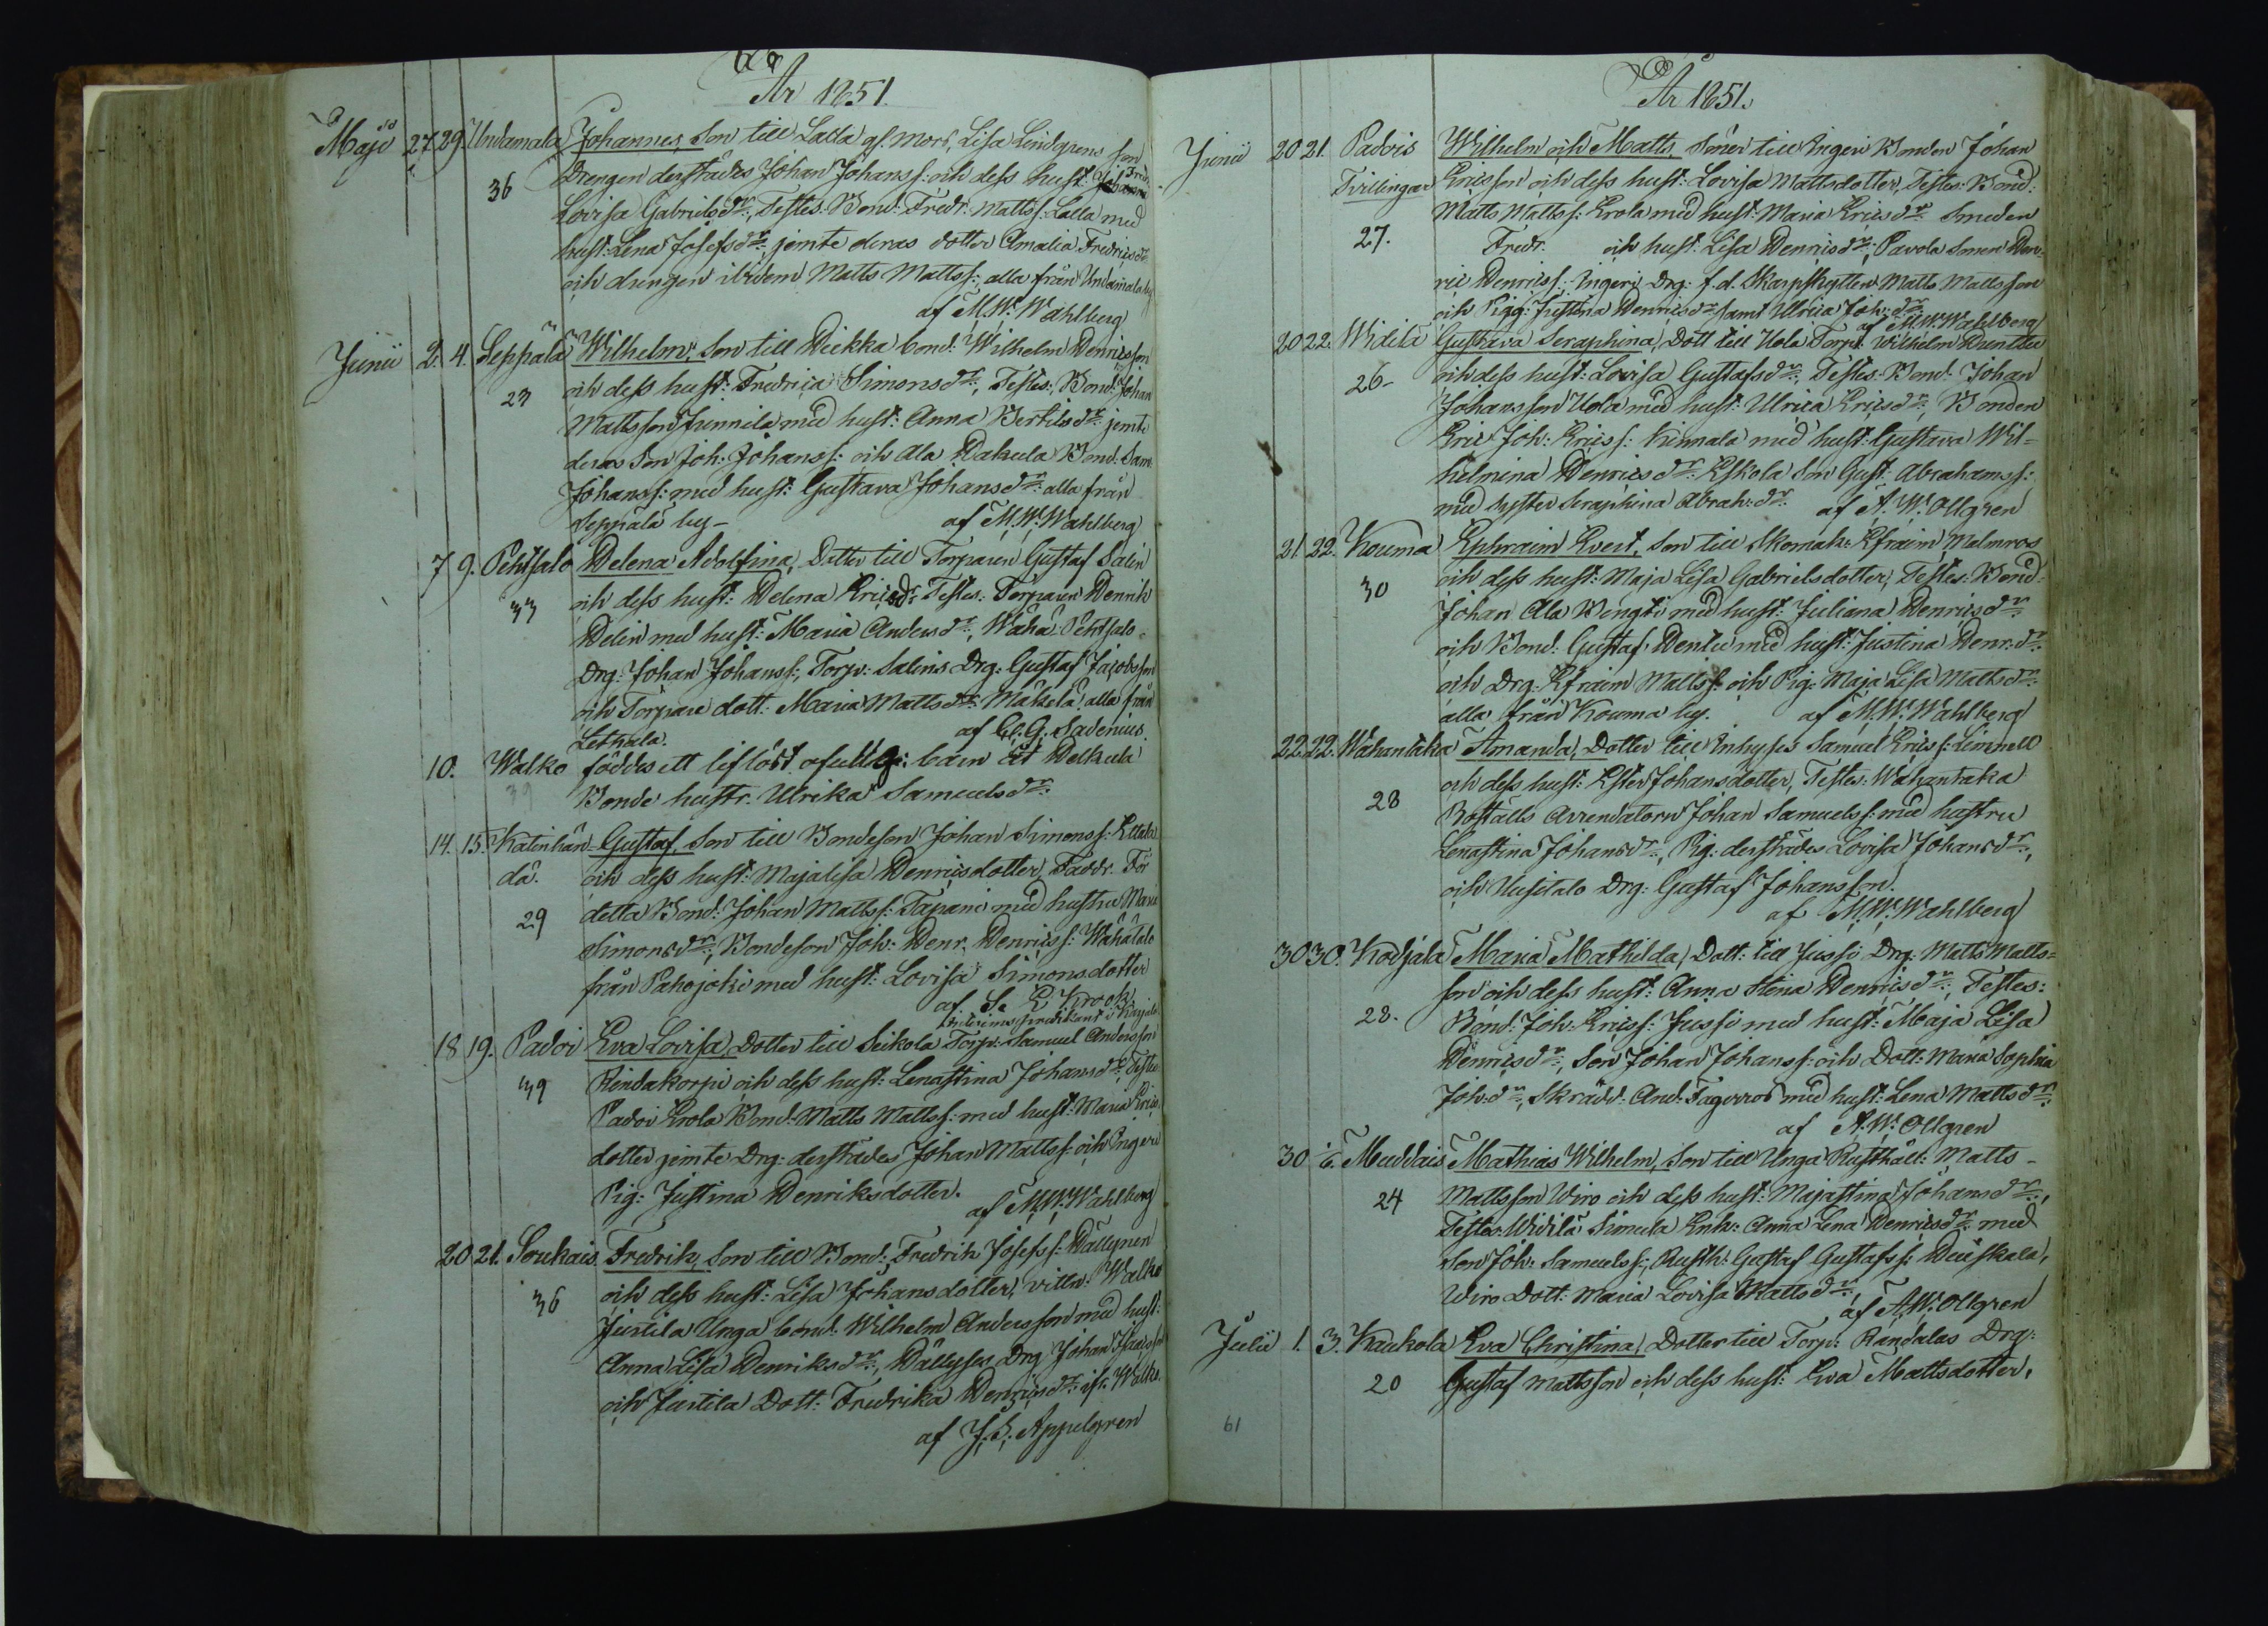 År 1851.
Maji 27 29. Undamala Johannes, Son till Lalla gl. mors, Lisa Lindgrens son
36 Drengen derstädes Johan Johanss: och dess hust:
Lovisa Gabrielsdr:, Testes: Bond: Fredr: Mattss: Lalla med
hust: Lena Josefsdr: jemte deras dotter Amalia Fredricsdr:
och drengen ibidem Matts Mattss: alla från Undamala by
af M. W. Wahlberg
Junii 2. 4. Seppälä Wilhelm, Son till Heikka bond: Wilhelm Henricsson
23 och dess hust: Fredrica Simonsdr:, Testes: Bond: Johan
Mattsson Junnila med hust: Anna Bertilsdr: jemte
deras Son Joh: Johanss: och Ala Hakula Bond: Sam:
Johanss: med hust: Gustava Johansdr: alla från
Seppälä by – af M. W. Wahlberg
7 9. Pehtsalo Helena Adolfina, Dotter till Torparen Gustaf Salin
33 och dess hust: Helena Ericsdr: Testes: Torparen Henrik
Helin med hust: Maria Andersdr:, Wähä Pehtsalo
Drg: Johan Johanss:, Torp: Salins Drg: Gustaf Jacobsson
och Torpare dott: Maria Mattsdr: Mäkelä, alla från
Lethala. af C. G. Sadenius.
10. Walko föddes ett liflöst ofullg: barn åt Helkula
39 Bonde hustr. Ulrika Samuelsdr:
14. 15. Katinhän- Gustaf, Son till Bondeson Johan Simonss: Ettala
dä. och dess hust: Majalisa Henricsdotter, Faddr. För
29 detta Bond: Johan Mattss: Tapani med hustru Maria
Simonsdr:, Bondeson Joh: Henr. Henricss: Wähätalo
från Pahojoki med hust: Lovisa Simonsdotter
af S. E. Krook
18 19. Padoi Eva Lovisa, Dotter till Seikola Torp: Samuel Andersson
39 Rindakorpi och dess hust: Lenastina Johansdr:, Testes:
Padoi Erola Bond: Matts Mattss: med hust: Maria Erics
dotter jemte Drg: derstädes Johan Mattss: och Ingeri
Pig: Justina Henriksdotter.
af M. W. Wahlberg
20 21. Soukais Fredrik, Son till Bond: Fredrik Josefss: Hällynen
36 och dess hust: Lisa Johansdotter, vittn: Walko
Justila Unga bond: Wilhelm Andersson med hust:
Anna Lisa Henriksdr:, Hällyses Drg: Johan Isacsson
och Justila Dott: Fredrika Henricsdr: ifr: Walko.
af J. F. Appelgren
År 1851.
Junii 20 21. Padois Wilhelm och Matts, Söner till Ingeri Bonden Johan
Tvillingar Ericsson och dess hust: Lovisa Mattsdotter, Testes: Bond:
Matts Mattss: Erola med hust: Maria Ericsdr: Smeden
27. Fredr. och hust: Lisa Henricsdr:, Pavola Sonen Hen-
ric Henricss: Ingeri Drg: f.d. Skarpskytten Matts Mattsson
och Pig: Justina Henricsdr: samt Ulrica Joh:dr:
af M. W. Wahlberg
20 22. Widilä Gustava Seraphina, Dott till Uola Torp: Wilhelm Huntta
26- och dess hust: Lovisa Gustafsdr:, Testes: Bond: Johan
Johansson Uola med hust: Ulrica Ericsdr:, Bonden
Eric Joh: Ericss: Kinnala med hust: Gustava Wil-
helmina Henricsdr: Eskola Son Gust: Abrahamss:
med syster Seraphina Abrah:dr: af A. W. Ollgren
21 22. Kouma Ephraim Evert, Son till Skomak: Efraim Malmros
30 och dess hust: Maja Lisa Gabrielsdotter, Testes: Bond:
Johan Ala Bengti med hust: Juliana Henricsdr:
och Bond: Gustaf Hentu med hust: Justina Henr:dr:
och Drg: Efraim Mattss: och Pig: Maja Lisa Mattsdr:
alla från Kouma by. af M. W. Wahlberg
22 22. Wähäntaka Amanda, Dotter till Inhyses Samuel Ericss: Limnell
och dess hust: Ester Johansdotter, Testes: Wähäntaka
28 Boställs Arrendatorn Johan Samuelss: med hustru
Lenastina Johansdr:, Pig: derstädes Lovisa Johansdr:,
och Uusitalo Drg: Gustaf Johansson.
af M. W. Wahlberg
30 30. Kodjala Maria Mathilda, Dott: till Jussi Drg: Matts Matts-
son och dess hust: Anna Stina Henricsdr:, Testes:
28. Bond: Joh: Ericss: Jussi med hust: Maja Lisa
Henricsdr:, Son Johan Johanss: och Dott: Maria Sophia
Joh:dr:, Skrädd: And: Fagerros med hust: Lena Mattsdr:
af A. W. Ollgren
30 6. Muddais Mathias Wilhelm, Son till Unga Rusthåll: Matts-
24 Mattsson Wiro och dess hust: Majastina Johansdr:,
Testes: Widilä Simula Enk: Anna Lena Henricsdr: med
Son Joh: Samuelss:, Rusth: Gustaf Gustafss: Heiskala,
Wiro Dott: Maria Lovisa Mattsdr:,
af A. W. Ollgren
Julii 1. 3. Kaukola Eva Christina, Dotter till Torp: Randalas Drg:
20 Gustaf Mattsson och dess hust: Eva Mattsdotter,
61